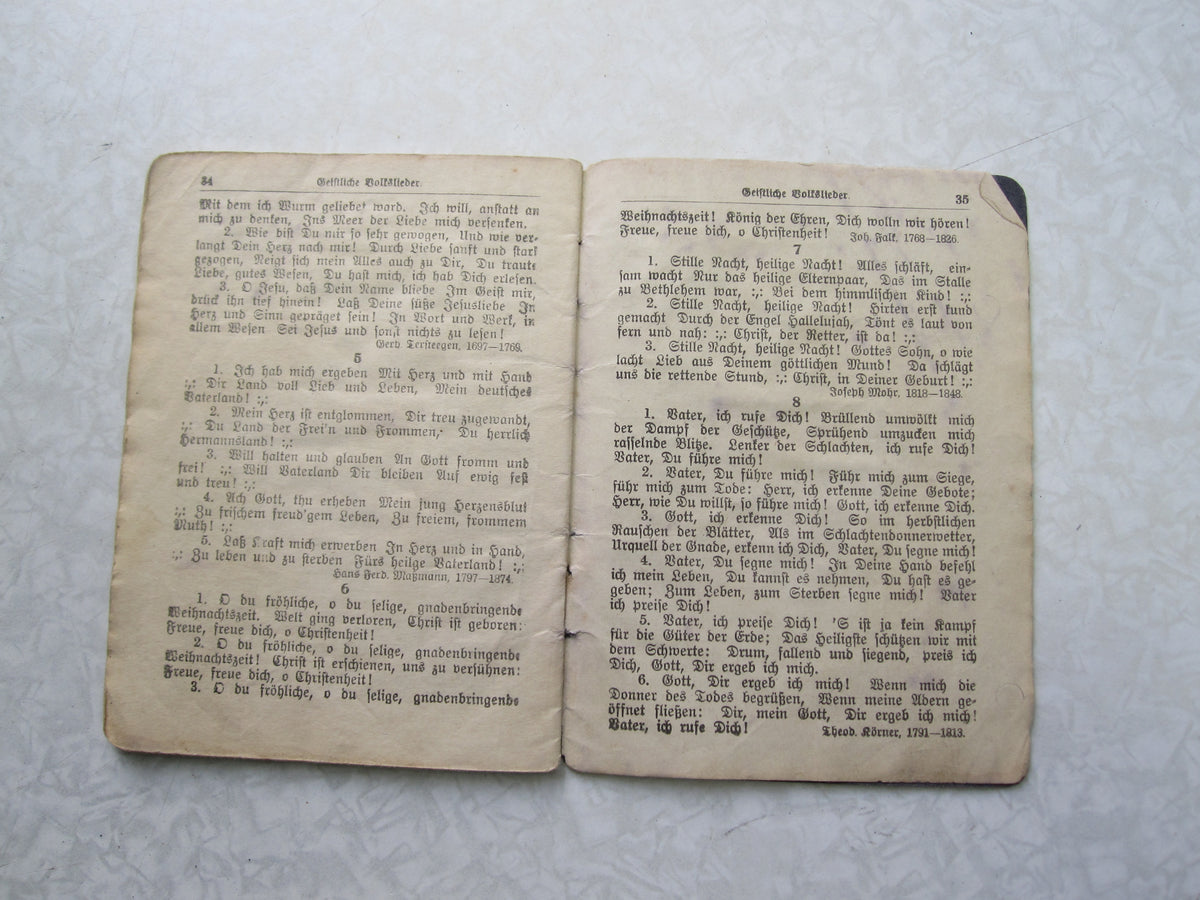 34
Geistliche Volkslieder.
Mit dem ich Wurm geliebet ward. Ich will, anstatt an
mich zu denken, Ins Meer der Liebe mich versenken.
2. Wie bist Du mir so sehr gewogen, Und wie ver-
langt Dein Herz nach mir! Durch Liebe sanft und stark
gezogen, Neigt sich mein Alles auch zu Dir, Du traute
Liebe, gutes Wesen, Du hast mich, ich hab Dich erlesen.
3. O Jesu, daß Dein Name bliebe Im Geist mir,
drück ihn tief hinein! Laß Deine süße Jesusliebe In
Herz und Sinn gepräget sein! In Wort und Werk, in
allem Wesen Sei Jesus und sonst nichts zu lesen!
Gerh. Tersteegen, 1697—1769.
5
1. Ich hab mich ergeben Mit Herz und mit Hand
:,: Dir Land voll Lieb und Leben, Mein deutsches
Vaterland! :,:
2. Mein Herz ist entglommen, Dir treu zugewandt,
:,: Du Land der Frei'n und Frommen, Du herrlich
Hermannsland! :,:
3. Will halten und glauben An Gott fromm und
frei! :,: Will Vaterland Dir bleiben Auf ewig fest
und treu! :,:
4. Ach Gott, thu erheben Mein jung Herzensblut
:,: Zu frischem freud'gem Leben, Zu freiem, frommem
Muth! :,:
5. Laß Kraft mich erwerben In Herz und in Hand,
:,: Zu leben und zu sterben Fürs heilge Vaterland! :,:
Hans Ferd. Maßmann, 1797—1874.
6
1. O du fröhliche, o du selige, gnadenbringende
Weihnachtszeit. Welt ging verloren, Christ ist geboren:
Freue, freue dich, o Christenheit!
2. O du fröhliche, o du selige, gnadenbringende
Weihnachtszeit! Christ ist erschienen, uns zu versühnen:
Freue, freue dich, o Christenheit!
3. O du fröhliche, o du selige, gnadenbringende
Geistliche Volkslieder.
35
Weihnachtszeit! König der Ehren, Dich wolln wir hören!
Freue, freue dich, o Christenheit!
Joh. Falk, 1768—1826.
7
1. Stille Nacht, heilige Nacht! Alles schläft, ein-
sam wacht Nur das heilige Elternpaar, Das im Stalle
zu Bethlehem war, :,: Bei dem himmlischen Kind! :,:
2. Stille Nacht, heilige Nacht! Hirten erst kund
gemacht Durch der Engel Hallelujah, Tönt es laut von
fern und nah: :,: Christ, der Retter, ist da! :,:
3. Stille Nacht, heilige Nacht! Gottes Sohn, o wie
lacht Lieb aus Deinem göttlichen Mund! Da schlägt
uns die rettende Stund, :,: Christ, in Deiner Geburt! :,:
Joseph Mohr, 1818—1848.
8
1. Vater, ich rufe Dich! Brüllend umwölkt mich
der Dampf der Geschütze, Sprühend umzucken mich
rasselnde Blitze. Lenker der Schlachten, ich rufe Dich!
Vater, Du führe mich!
2. Vater, Du führe mich! Führ mich zum Siege,
führ mich zum Tode: Herr, ich erkenne Deine Gebote;
Herr, wie Du willst, so führe mich! Gott, ich erkenne Dich.
3. Gott, ich erkenne Dich! So im herbstlichen
Rauschen der Blätter, Als im Schlachtendonnerwetter,
Urquell der Gnade, erkenn ich Dich, Vater, Du segne mich!
4. Vater, Du segne mich! In Deine Hand befehl
ich mein Leben, Du kannst es nehmen, Du hast es ge-
geben; Zum Leben, zum Sterben segne mich! Vater
ich preise Dich!
5. Vater, ich preise Dich! 'S ist ja kein Kampf
für die Güter der Erde; Das Heiligste schützen wir mit
dem Schwerte: Drum, fallend und siegend, preis ich
Dich, Gott, Dir ergeb ich mich.
6. Gott, Dir ergeb ich mich! Wenn mich die
Donner des Todes begrüßen, Wenn meine Adern ge-
öffnet fließen: Dir, mein Gott, Dir ergeb ich mich!
Vater, ich rufe Dich!
Theod. Körner, 1791—1813.